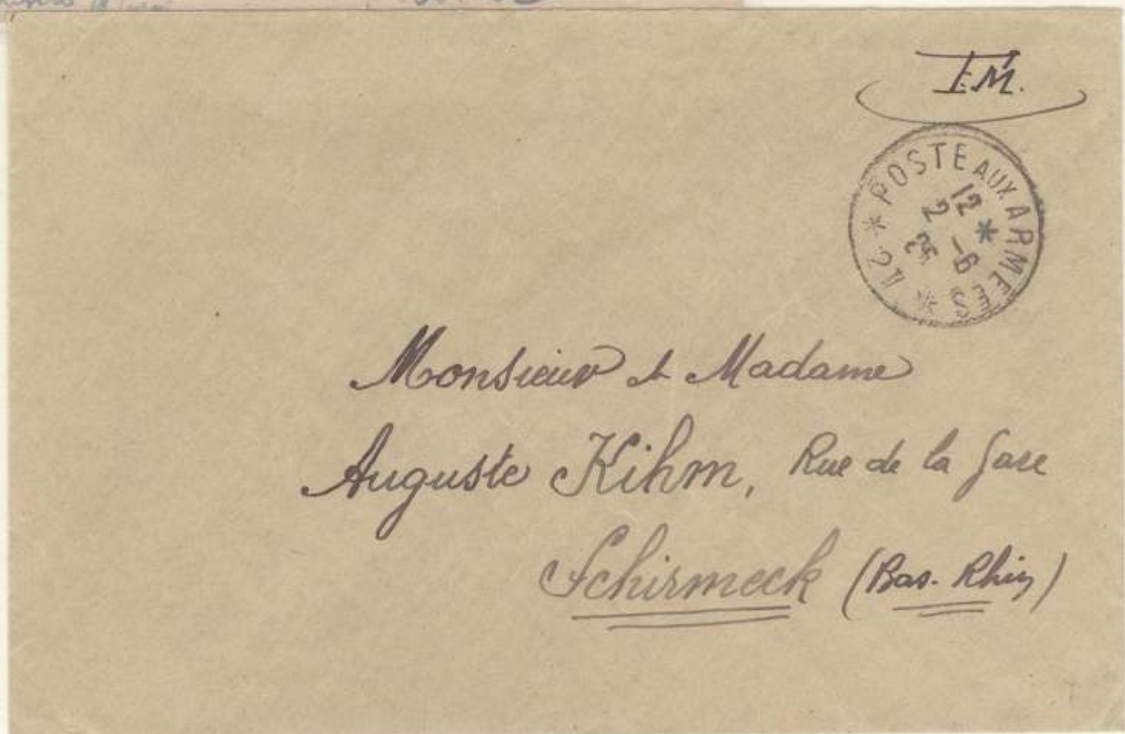 F.M.
POSTE AUX ARMEES * 42 *
12 *
2 -6
25
Monsieur et Madame
Auguste Kihm, Rue de la Gare
Schirmeck (Bas-Rhin)